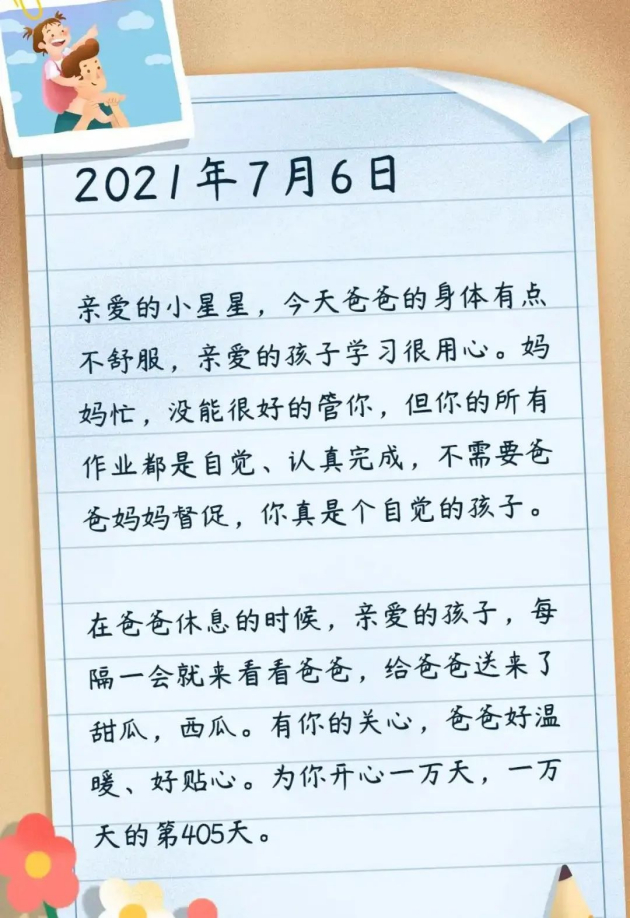 2021年7月6日
亲爱的小星星，今天爸爸的身体有点
不舒服，亲爱的孩子学习很用心。妈
妈忙，没能很好的管你，但你的所有
作业都是自觉、认真完成，不需要爸
爸妈妈督促，你真是个自觉的孩子。
在爸爸休息的时候，亲爱的孩子，每
隔一会就来看看爸爸，给爸爸送来了
甜瓜，西瓜。有你的关心，爸爸好温
暖、好贴心。为你开心一万天，一万
天的第405天。